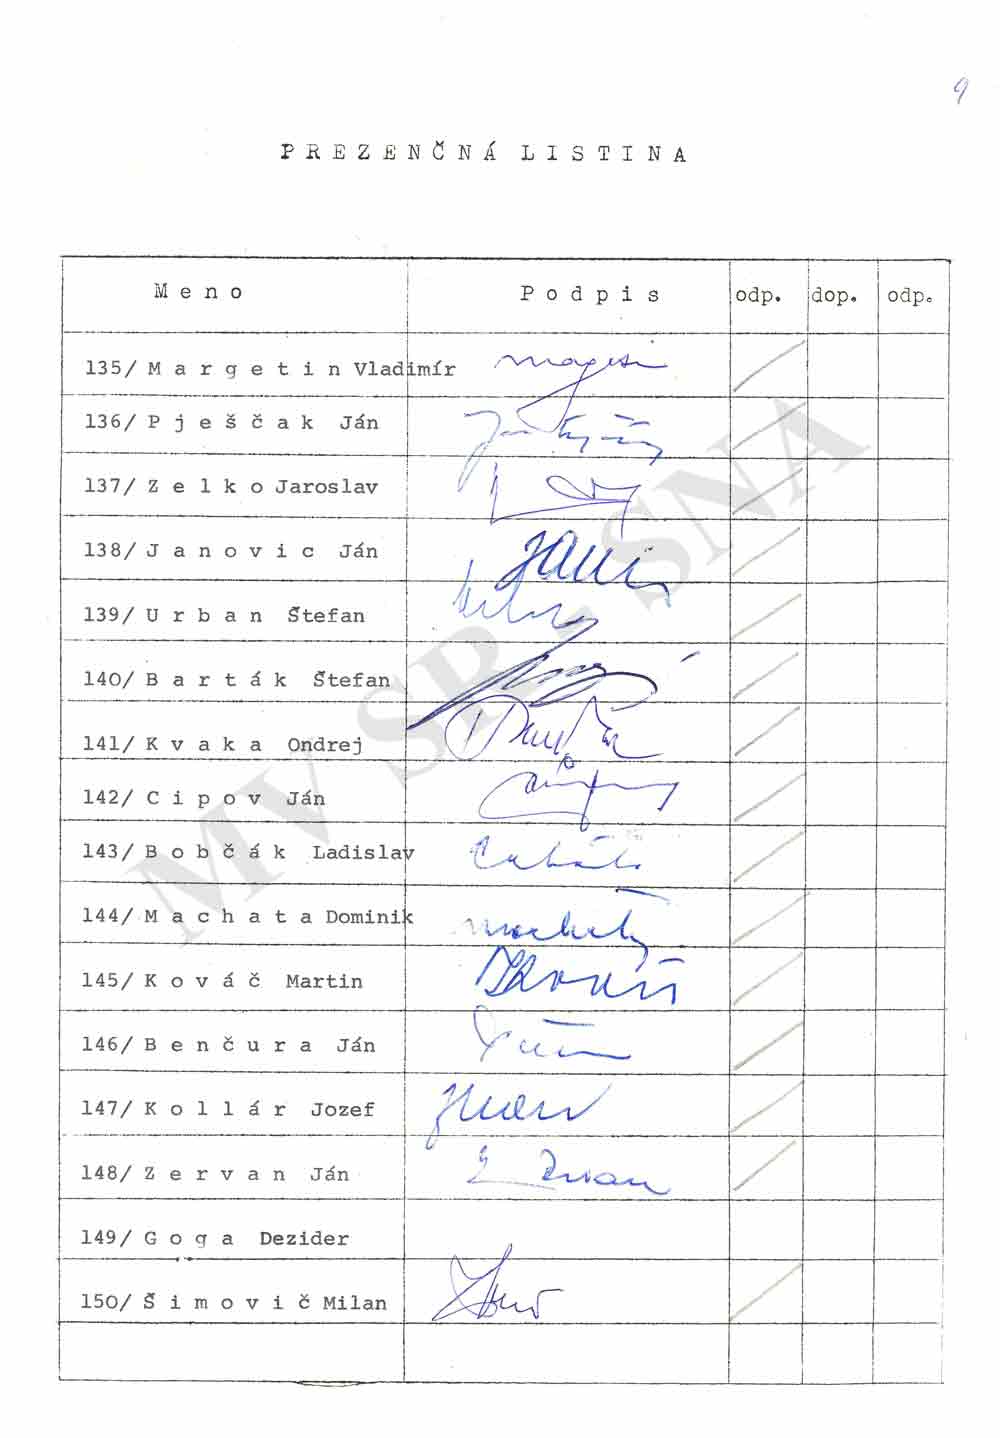 9
PREZENČNÁ LISTINA
Meno Podpis odp. dop. odp.
135/ Margetin Vladimír
136/ Pješčak Ján
137/ Zelko Jaroslav
138/ Janovic Ján
139/ Urban Štefan
140/ Barták Štefan
141/ Kvaka Ondrej
142/ Cipov Ján
143/ Bobčák Ladislav
144/ Machata Dominik
145/ Kováč Martin
146/ Benčura Ján
147/ Kollár Jozef
148/ Zervan Ján
149/ Goga Dezider
150/ Šimovič Milan
MV SR - SNA